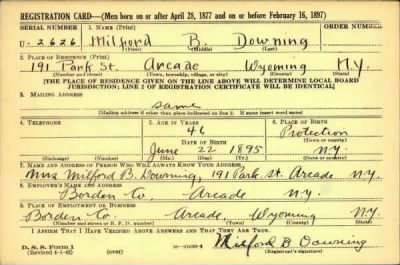 REGISTRATION CARD—(Men born on or after April 28, 1877 and on or before February 16, 1897)
SERIAL NUMBER 1. NAME (Print)
U 2626 Milford B. Downing
(First) (Middle) (Last)
2. PLACE OF RESIDENCE (Print)
191 Park St. Arcade Wyoming N.Y.
(Number and street) (Town, township, village, or city) (County) (State)
[THE PLACE OF RESIDENCE GIVEN ON THE LINE ABOVE WILL DETERMINE LOCAL BOARD
JURISDICTION; LINE 2 OF REGISTRATION CERTIFICATE WILL BE IDENTICAL]
3. MAILING ADDRESS
same
[Mailing address if other than place indicated on line 2. If same insert word same]
4. TELEPHONE 5. AGE IN YEARS 6. PLACE OF BIRTH
46 Protection
DATE OF BIRTH (Town or county)
June 22 1895 N.Y.
(Exchange) (Number) (Mo.) (Day) (Yr.) (State or country)
7. NAME AND ADDRESS OF PERSON WHO WILL ALWAYS KNOW YOUR ADDRESS
Mrs Milford B. Downing, 191 Park St. Arcade N.Y.
8. EMPLOYER'S NAME AND ADDRESS
Borden Co. Arcade N.Y.
9. PLACE OF EMPLOYMENT OR BUSINESS
Borden Co Arcade, Wyoming N.Y.
(Number and street or R. F. D. number) (Town) (County) (State)
I AFFIRM THAT I HAVE VERIFIED ABOVE ANSWERS AND THAT THEY ARE TRUE.
D. S. S. Form 1
(Revised 4-1-42) (over) Milford B Downing
(Registrant's signature)